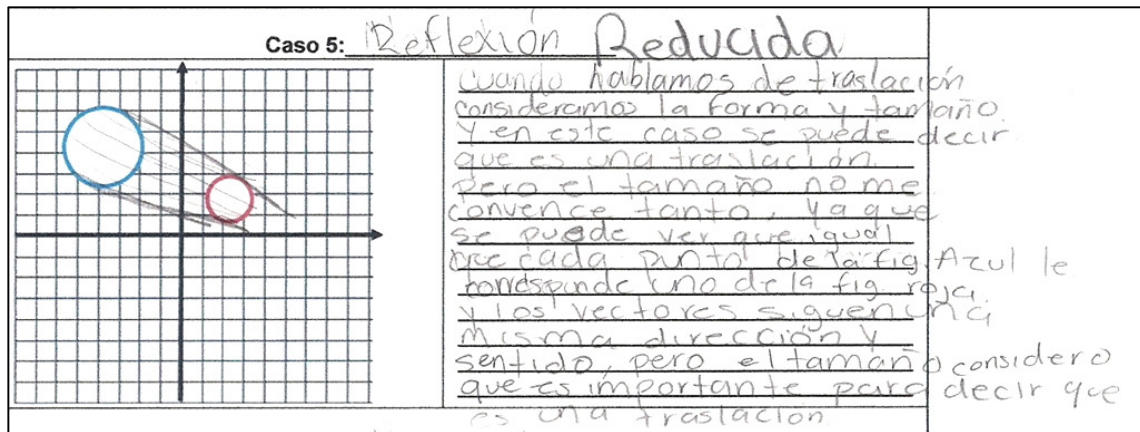 Caso 5: Reflexión Reducida
cuando hablamos de traslación
consideramos la forma y tamaño.
Y en este caso se puede decir
que es una traslación.
pero el tamaño no me
convence tanto, ya que
se puede ver que igual
que cada punto de la fig. Azul le
corresponde uno de la fig. roja.
y los vectores siguen una
misma dirección y
sentido, pero el tamaño considero
que es importante para decir que
es una traslación